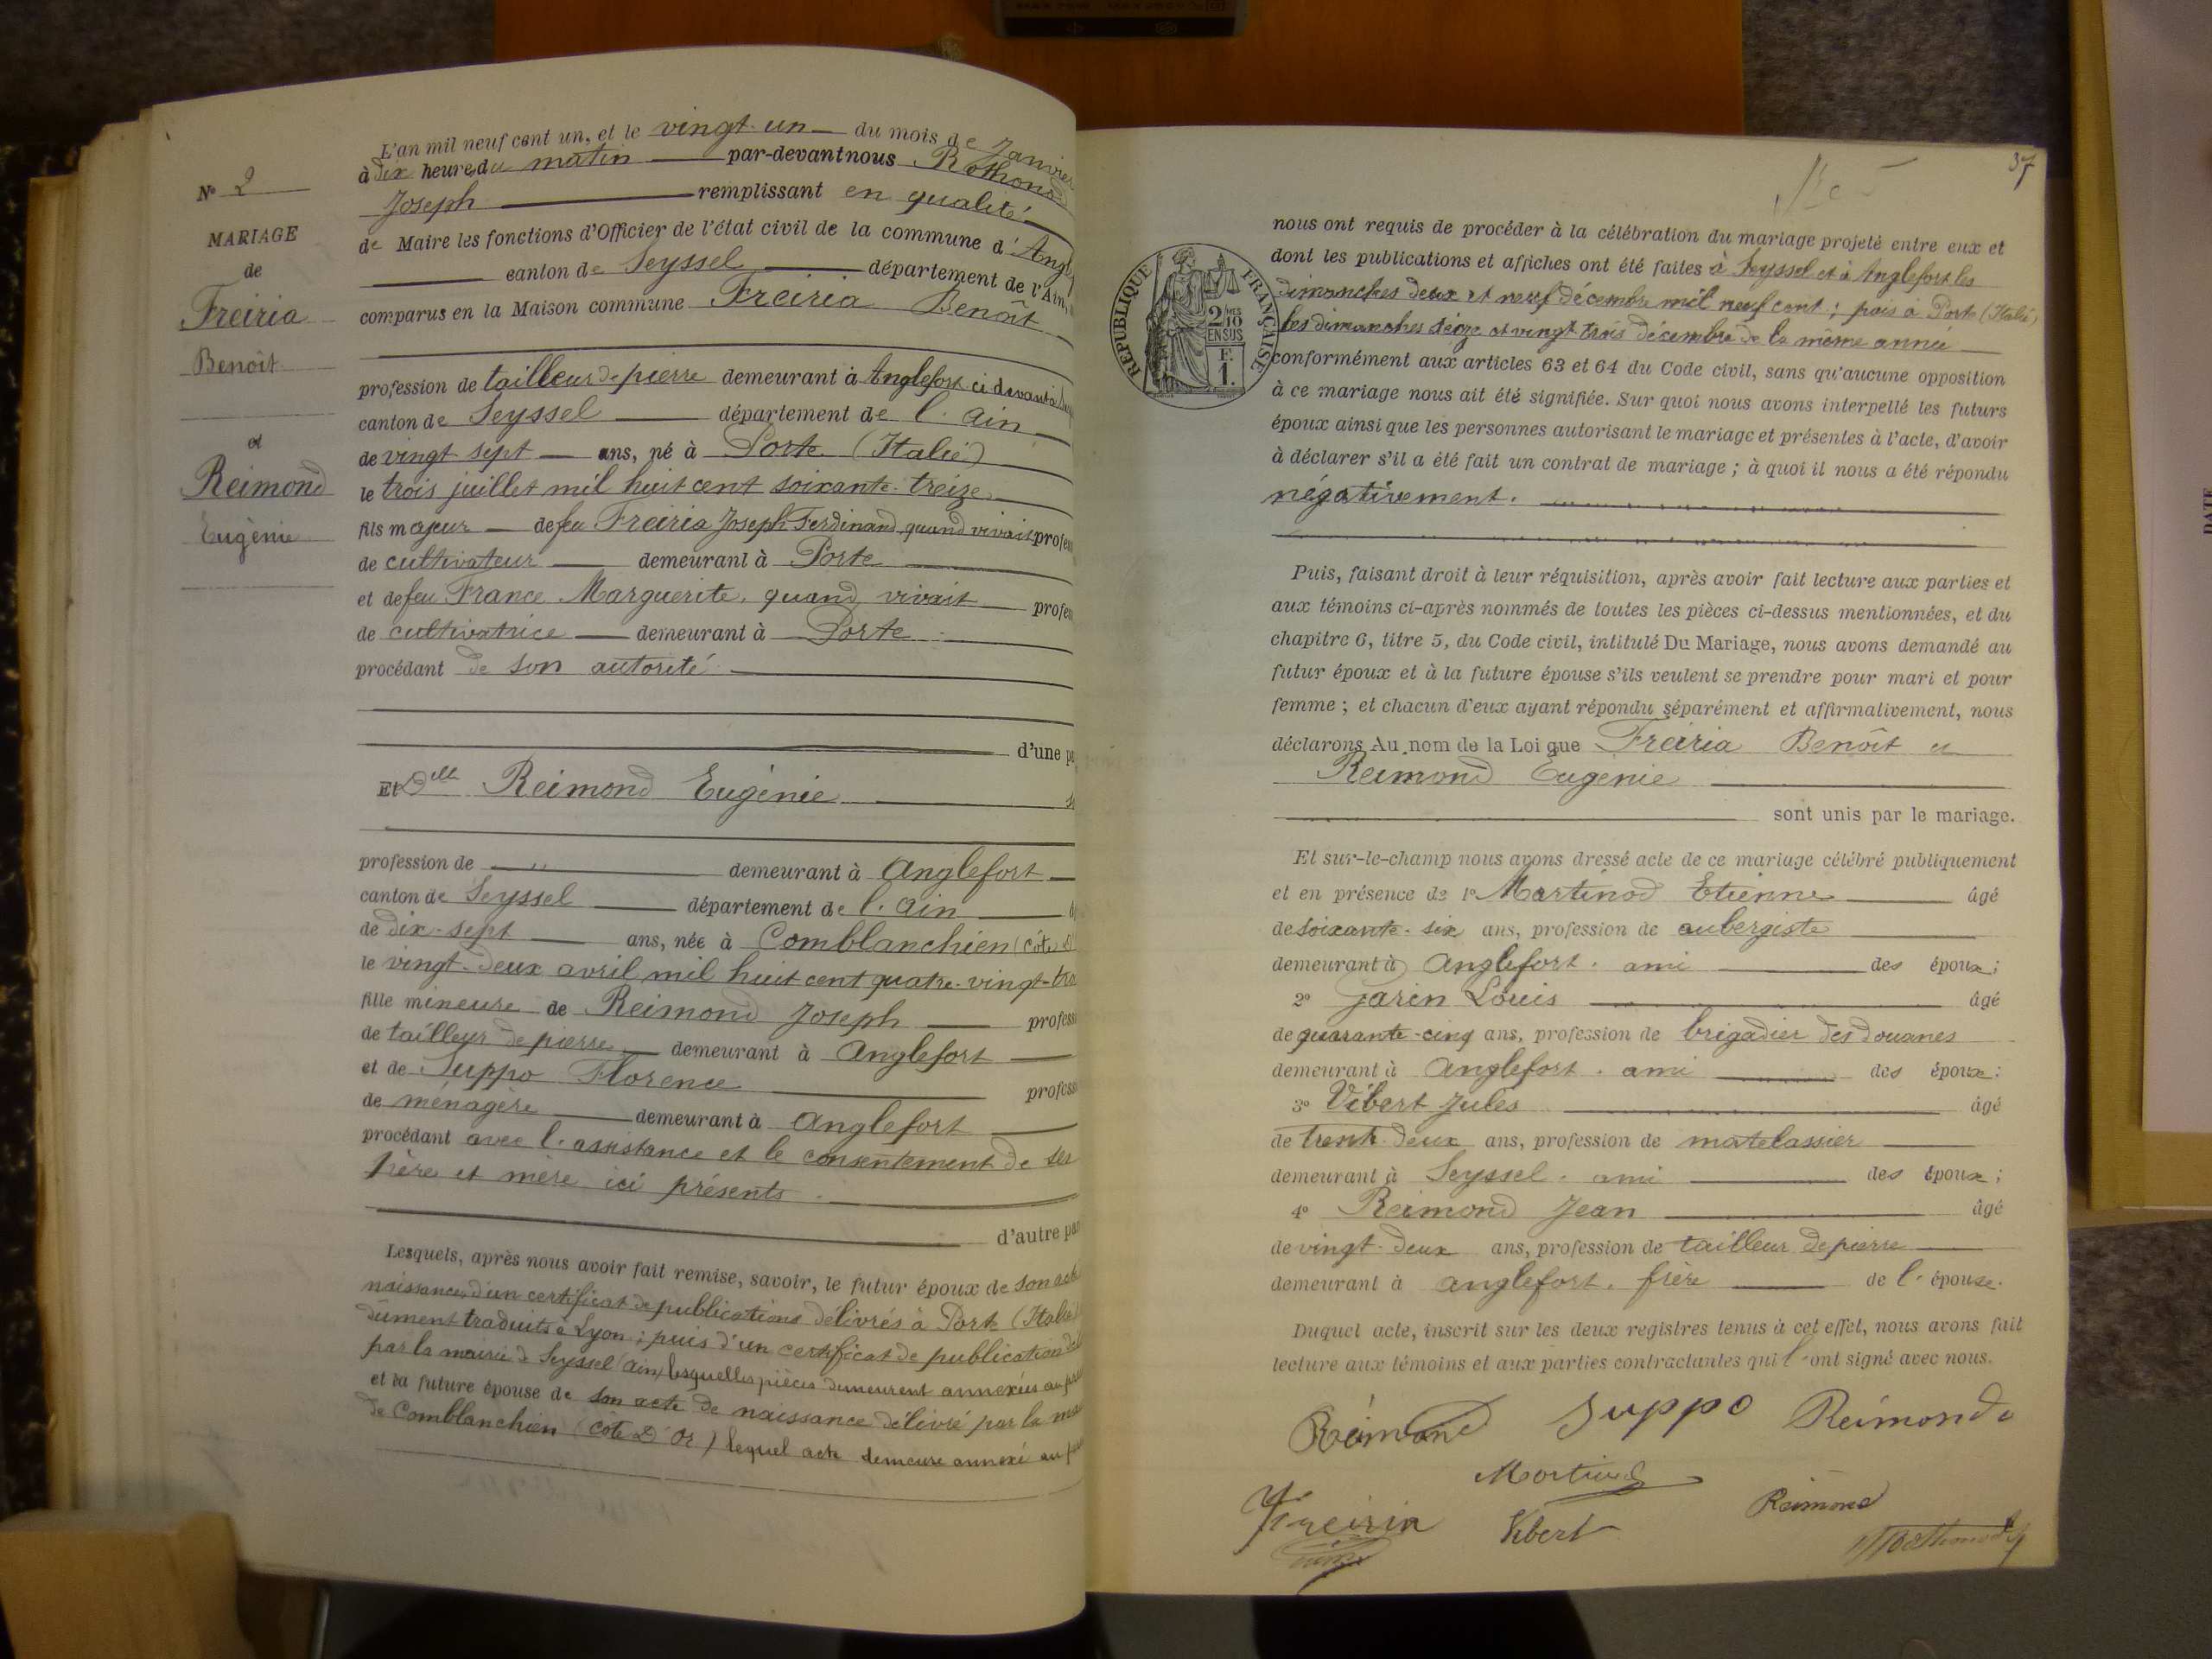 N° 2
MARIAGE
de
Freiria
Benoît
et
Reimond
Eugènie
L'an mil neuf cent un, et le vingt-un du mois de Janvier
à dix heure du matin par-devant nous
Joseph remplissant en qualité
de Maire les fonctions d'Officier de l'état civil de la commune d'
canton de Seyssel département de l'Ain,
comparus en la Maison commune Freiria Benoît
profession de tailleur de pierre demeurant à Anglefort ci devant à
canton de Seyssel département de l'ain
de vingt-sept ans, né à Porte (Italie)
le trois juillet mil huit cent soixante-treize
fils majeur de feu Freiria Joseph Ferdinand quand vivait
de cultivateur demeurant à Porte
et de feu France Marguerite, quand vivait
de cultivatrice demeurant à Porte
procédant de son autorité
d'une
Et Dlle Reimond Eugènie
profession de " demeurant à Anglefort
canton de Seyssel département de l'ain
de dix-sept ans, née à Comblanchien (côte
le vingt-deux avril mil huit cent quatre-vingt-
fille mineure de Reimond Joseph
de tailleur de pierre demeurant à Anglefort
et de Suppo Florence
de ménagère demeurant à Anglefort
procédant avec l'assistance et le consentement de ses
père et mère ici présents.
d'autre
Lesquels, après nous avoir fait remise, savoir, le futur époux de son
naissance, d'un certificat de publications délivrés à Porte (Italie)
dûment traduits à Lyon ; puis d'un certificat de publication
par la mairie de Seyssel (ain) lesquelles pièces demeurent annexées au
et la future épouse de son acte de naissance délivré par la
de Comblanchien (côte d'Or) lequel acte demeure annexé au
37
RÉPUBLIQUE FRANÇAISE
2 10 MES
EN SUS
F.
1.
nous ont requis de procéder à la célébration du mariage projeté entre eux et
dont les publications et affiches ont été faites à Seyssel et à Anglefort les
dimanches deux et neuf décembre mil neuf cent ; puis à Porte (Italie)
les dimanches seize et vingt trois décembre de la même année
conformément aux articles 63 et 64 du Code civil, sans qu'aucune opposition
à ce mariage nous ait été signifiée. Sur quoi nous avons interpellé les futurs
époux ainsi que les personnes autorisant le mariage et présentes à l'acte, d'avoir
à déclarer s'il a été fait un contrat de mariage ; à quoi il nous a été répondu
négativement.
Puis, faisant droit à leur réquisition, après avoir fait lecture aux parties et
aux témoins ci-après nommés de toutes les pièces ci-dessus mentionnées, et du
chapitre 6, titre 5, du Code civil, intitulé Du Mariage, nous avons demandé au
futur époux et à la future épouse s'ils veulent se prendre pour mari et pour
femme ; et chacun d'eux ayant répondu séparément et affirmativement, nous
déclarons Au nom de la Loi que Freiria Benoît et
Reimond Eugènie
sont unis par le mariage.
Et sur-le-champ nous avons dressé acte de ce mariage célébré publiquement
et en présence de 1° Martinod Etienne âgé
de soixante-six ans, profession de aubergiste
demeurant à Anglefort. ami des époux ;
2° Garin Louis âgé
de quarante-cinq ans, profession de brigadier des douanes
demeurant à Anglefort. ami des époux ;
3° Vibert Jules âgé
de trente-deux ans, profession de matelassier
demeurant à Seyssel. ami des époux ;
4° Reimond Jean âgé
de vingt-deux ans, profession de tailleur de pierre
demeurant à Anglefort. frère de l'épouse.
Duquel acte, inscrit sur les deux registres tenus à cet effet, nous avons fait
lecture aux témoins et aux parties contractantes qui l'ont signé avec nous.
Reimond Suppo Reimond
Martinod
Freiria Vibert Reimond